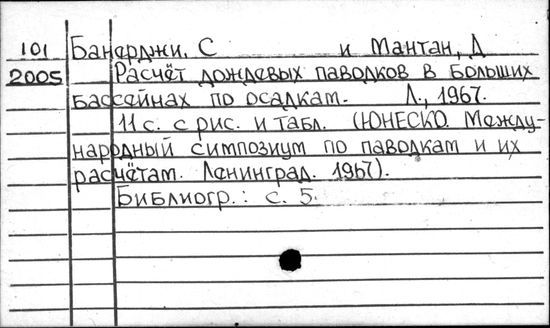 101 Банерджи, С и Мантан, Д
2005 Расчёт дождевых паводков в больших
бассейнах по осадкам. Л., 1967.
11 с. с рис. и табл. (ЮНЕСКО. Между-
народный симпозиум по паводкам и их
расчётам. Ленинград. 1967).
Библиогр.: с. 5.